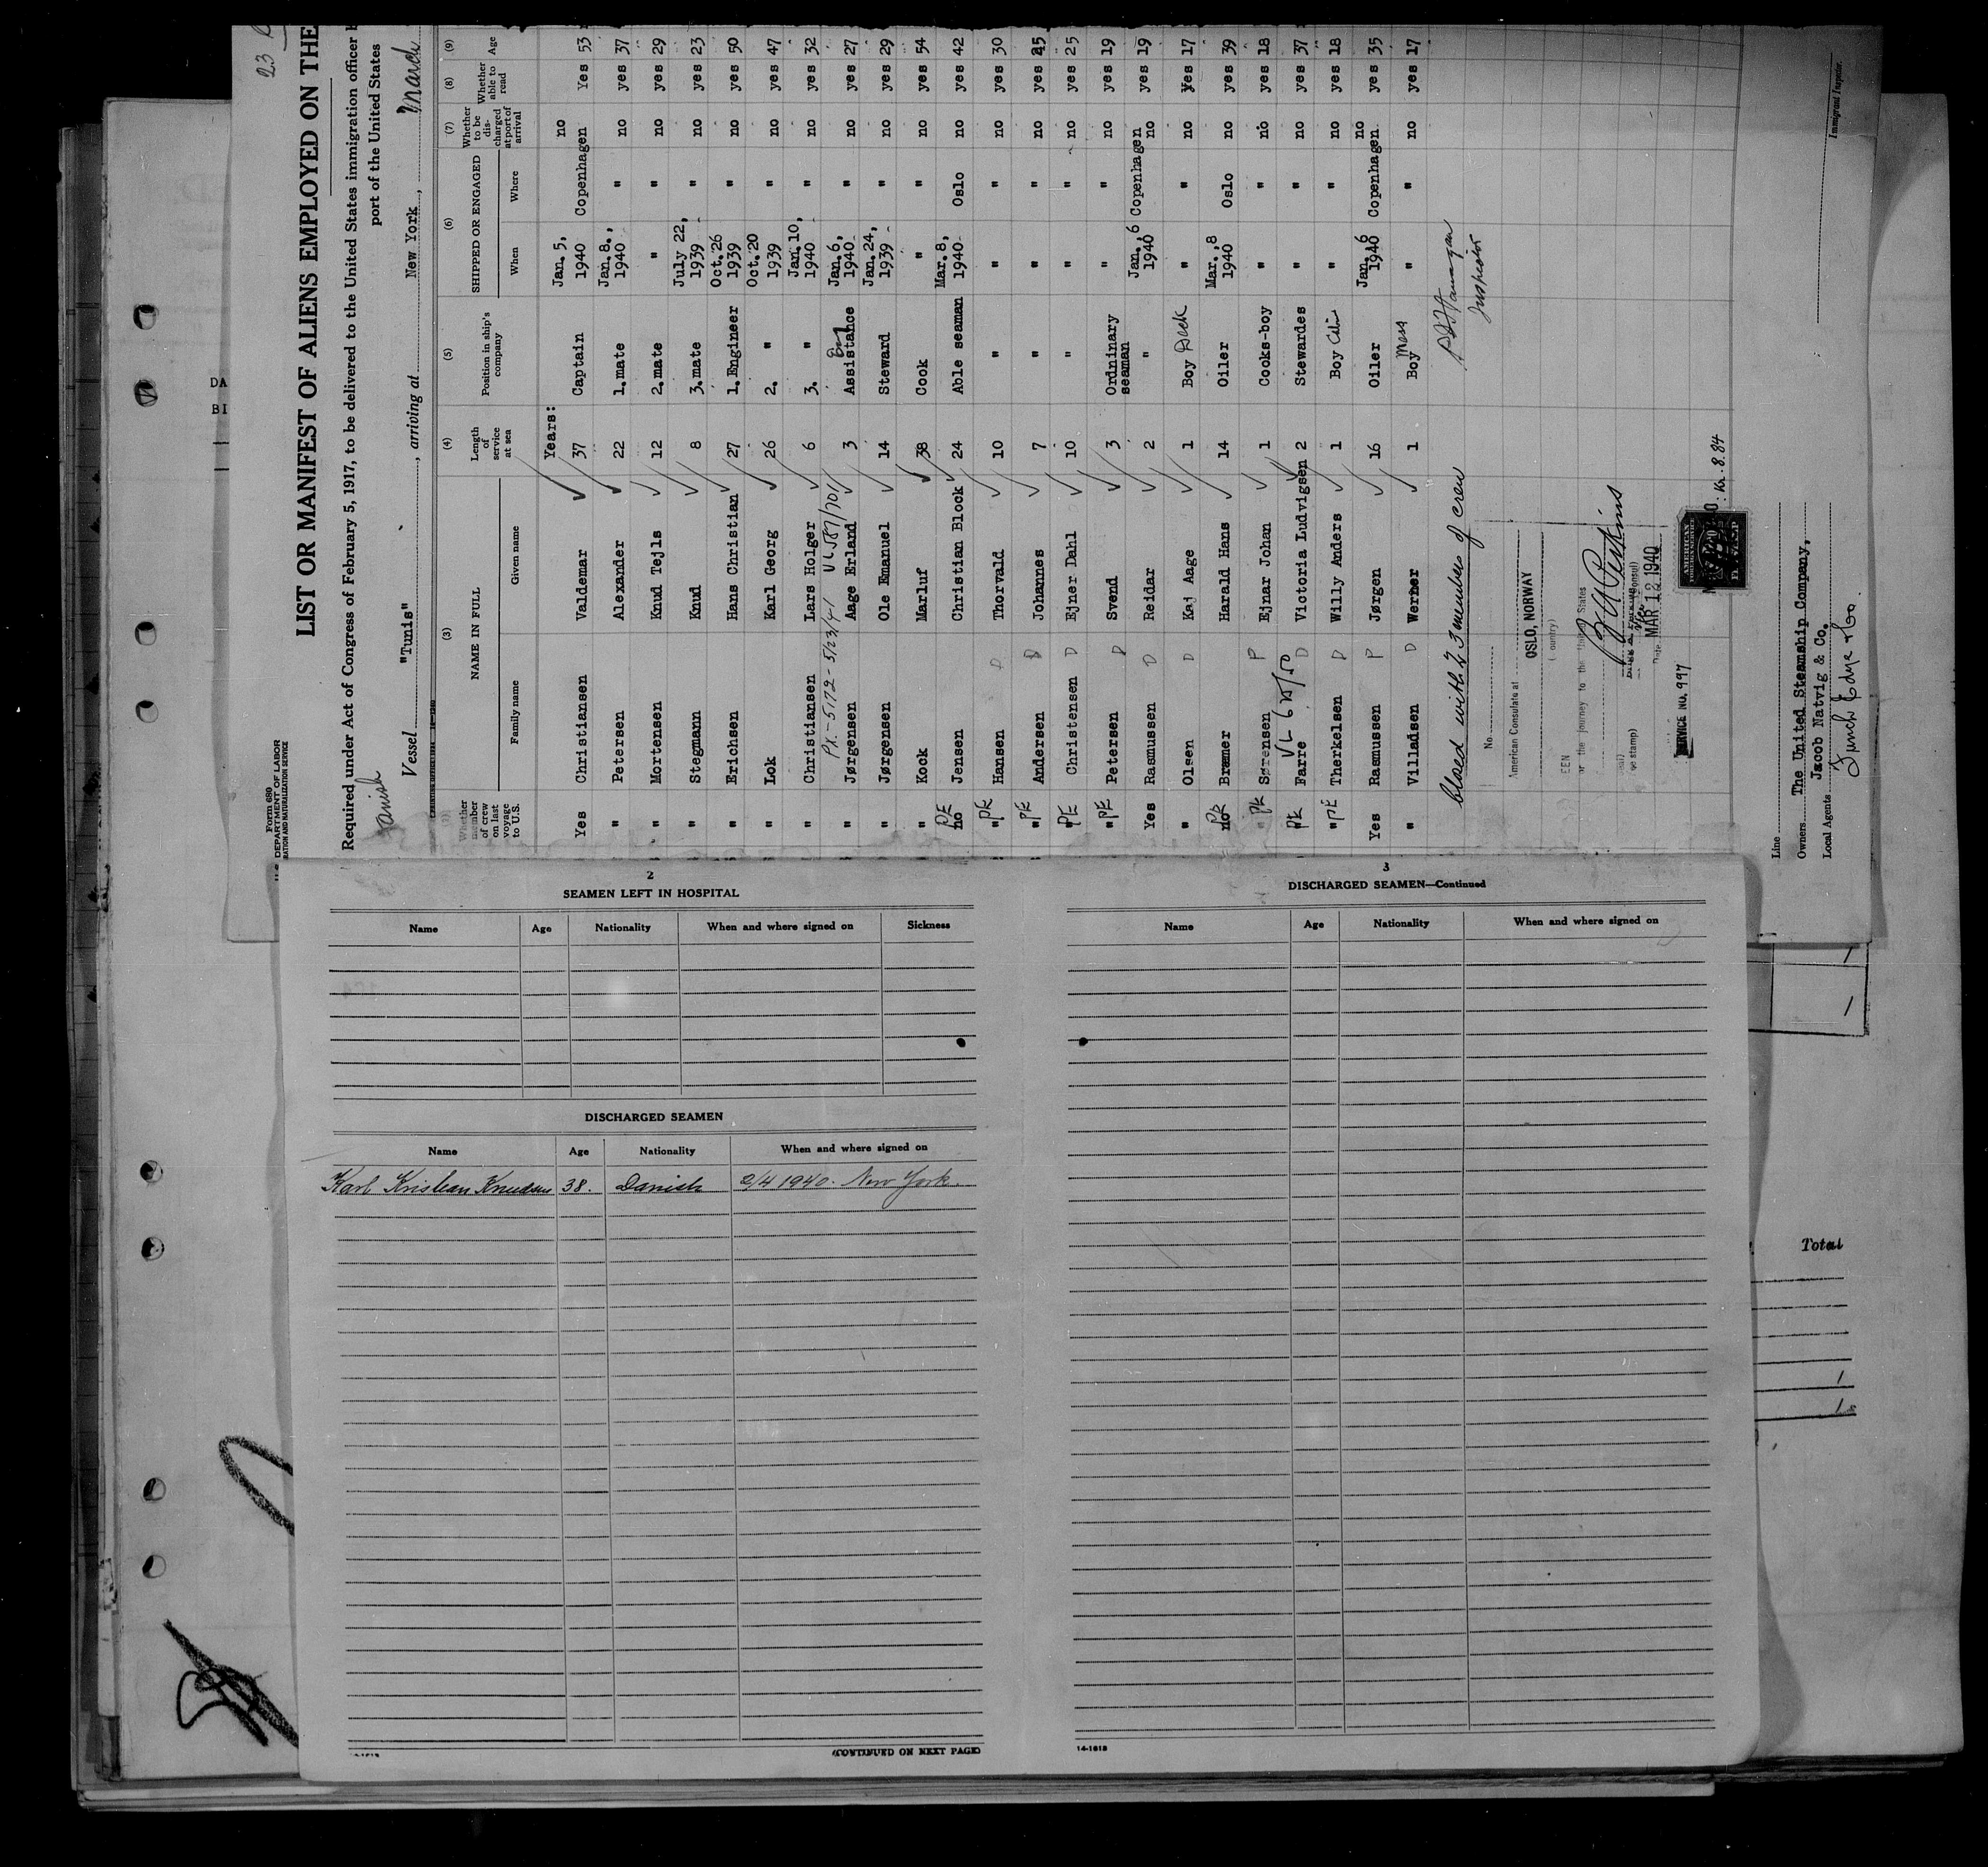 23
Form 680
U.S. DEPARTMENT OF LABOR
IMMIGRATION AND NATURALIZATION SERVICE
LIST OR MANIFEST OF ALIENS EMPLOYED ON THE
Required under Act of Congress of February 5, 1917, to be delivered to the United States immigration officer
port of the United States
Danish
Vessel "Tunis", arriving at New York, March
(3) (4) (5) (6) (7) (8) (9)
Whether member of crew on last voyage to U.S. NAME IN FULL Family name Given name Length of service at sea Position in ship's company SHIPPED OR ENGAGED When Where Whether to be discharged at port of arrival Whether able to read Age
Years:
Yes Christiansen Valdemar 37 Captain Jan. 5, 1940 Copenhagen no Yes 53
" Petersen Alexander 22 1.mate Jan.8., 1940 " no yes 37
" Mortensen Knud Tejls 12 2.mate " " no yes 29
" Stegmann Knud 8 3.mate July 22, 1939 " no yes 23
" Erichsen Hans Christian 27 1.Engineer Oct.26 1939 " no yes 50
" Lok Karl Georg 26 2. " Oct.20 1939 " no yes 47
" Christiansen Lars Holger 6 3. " Jan.10, 1940 " no yes 32
PX.-5172-5/23/41 VL 587/701
" Jørgensen Aage Erland 3 Assistance Boy Jan.6, 1940 " no yes 27
" Jørgensen Ole Emanuel 14 Steward Jan.24, 1939 " no yes 29
" Kock Marluf 38 Cook " " no yes 54
PE no Jensen Christian Block 24 Able seaman Mar.8, 1940 Oslo no yes 42
" PE Hansen D Thorvald 10 " " " no yes 30
" PE Andersen D Johannes 7 " " " no yes 25
PE Christensen D Ejner Dahl 10 " " " no yes 25
" PE Petersen D Svend 3 Ordinary seaman " " no yes 19
Yes Rasmussen D Reidar 2 " Jan.,6 1940 Copenhagen no yes 19
" Olsen D Kaj Aage 1 Boy Deck " " no Yes 17
PE no Bramer Harald Hans 14 Oiler Mar.,8 1940 Oslo no yes 39
" PE Sørensen P Ejnar Johan 1 Cooks-boy " " no yes 18
VL 6 12/50
PE Farre D Victoria Ludvigsen 2 Stewardes " " no yes 37
" PE Therkelsen D Willy Anders 1 Boy " " no yes 18
Yes Rasmussen P Jørgen 16 Oiler Jan.6 1940 Copenhagen no yes 35
" Villadsen D Werner 1 Boy Mess " " no yes 17
closed with 23 members of crew
Inspector
No.
American Consulate at OSLO, NORWAY
(Country)
SEEN
For the journey to the United States
MAR 12 1940
SERVICE NO. 997
AMERICAN
Kr. 8.84
Line
Owners The United Steamship Company,
Jacob Natvig & Co.
Local Agents Funch Edye & Co.
Immigrant Inspector.
DA
BI
2
SEAMEN LEFT IN HOSPITAL
Name Age Nationality When and where signed on Sickness
DISCHARGED SEAMEN
Name Age Nationality When and where signed on
Karl Kristian Knudsen 38. Danish 2/4 1940. New York.
(CONTINUED ON NEXT PAGE)
3
DISCHARGED SEAMEN—Continued
Name Age Nationality When and where signed on
14-1613
Total
1
1